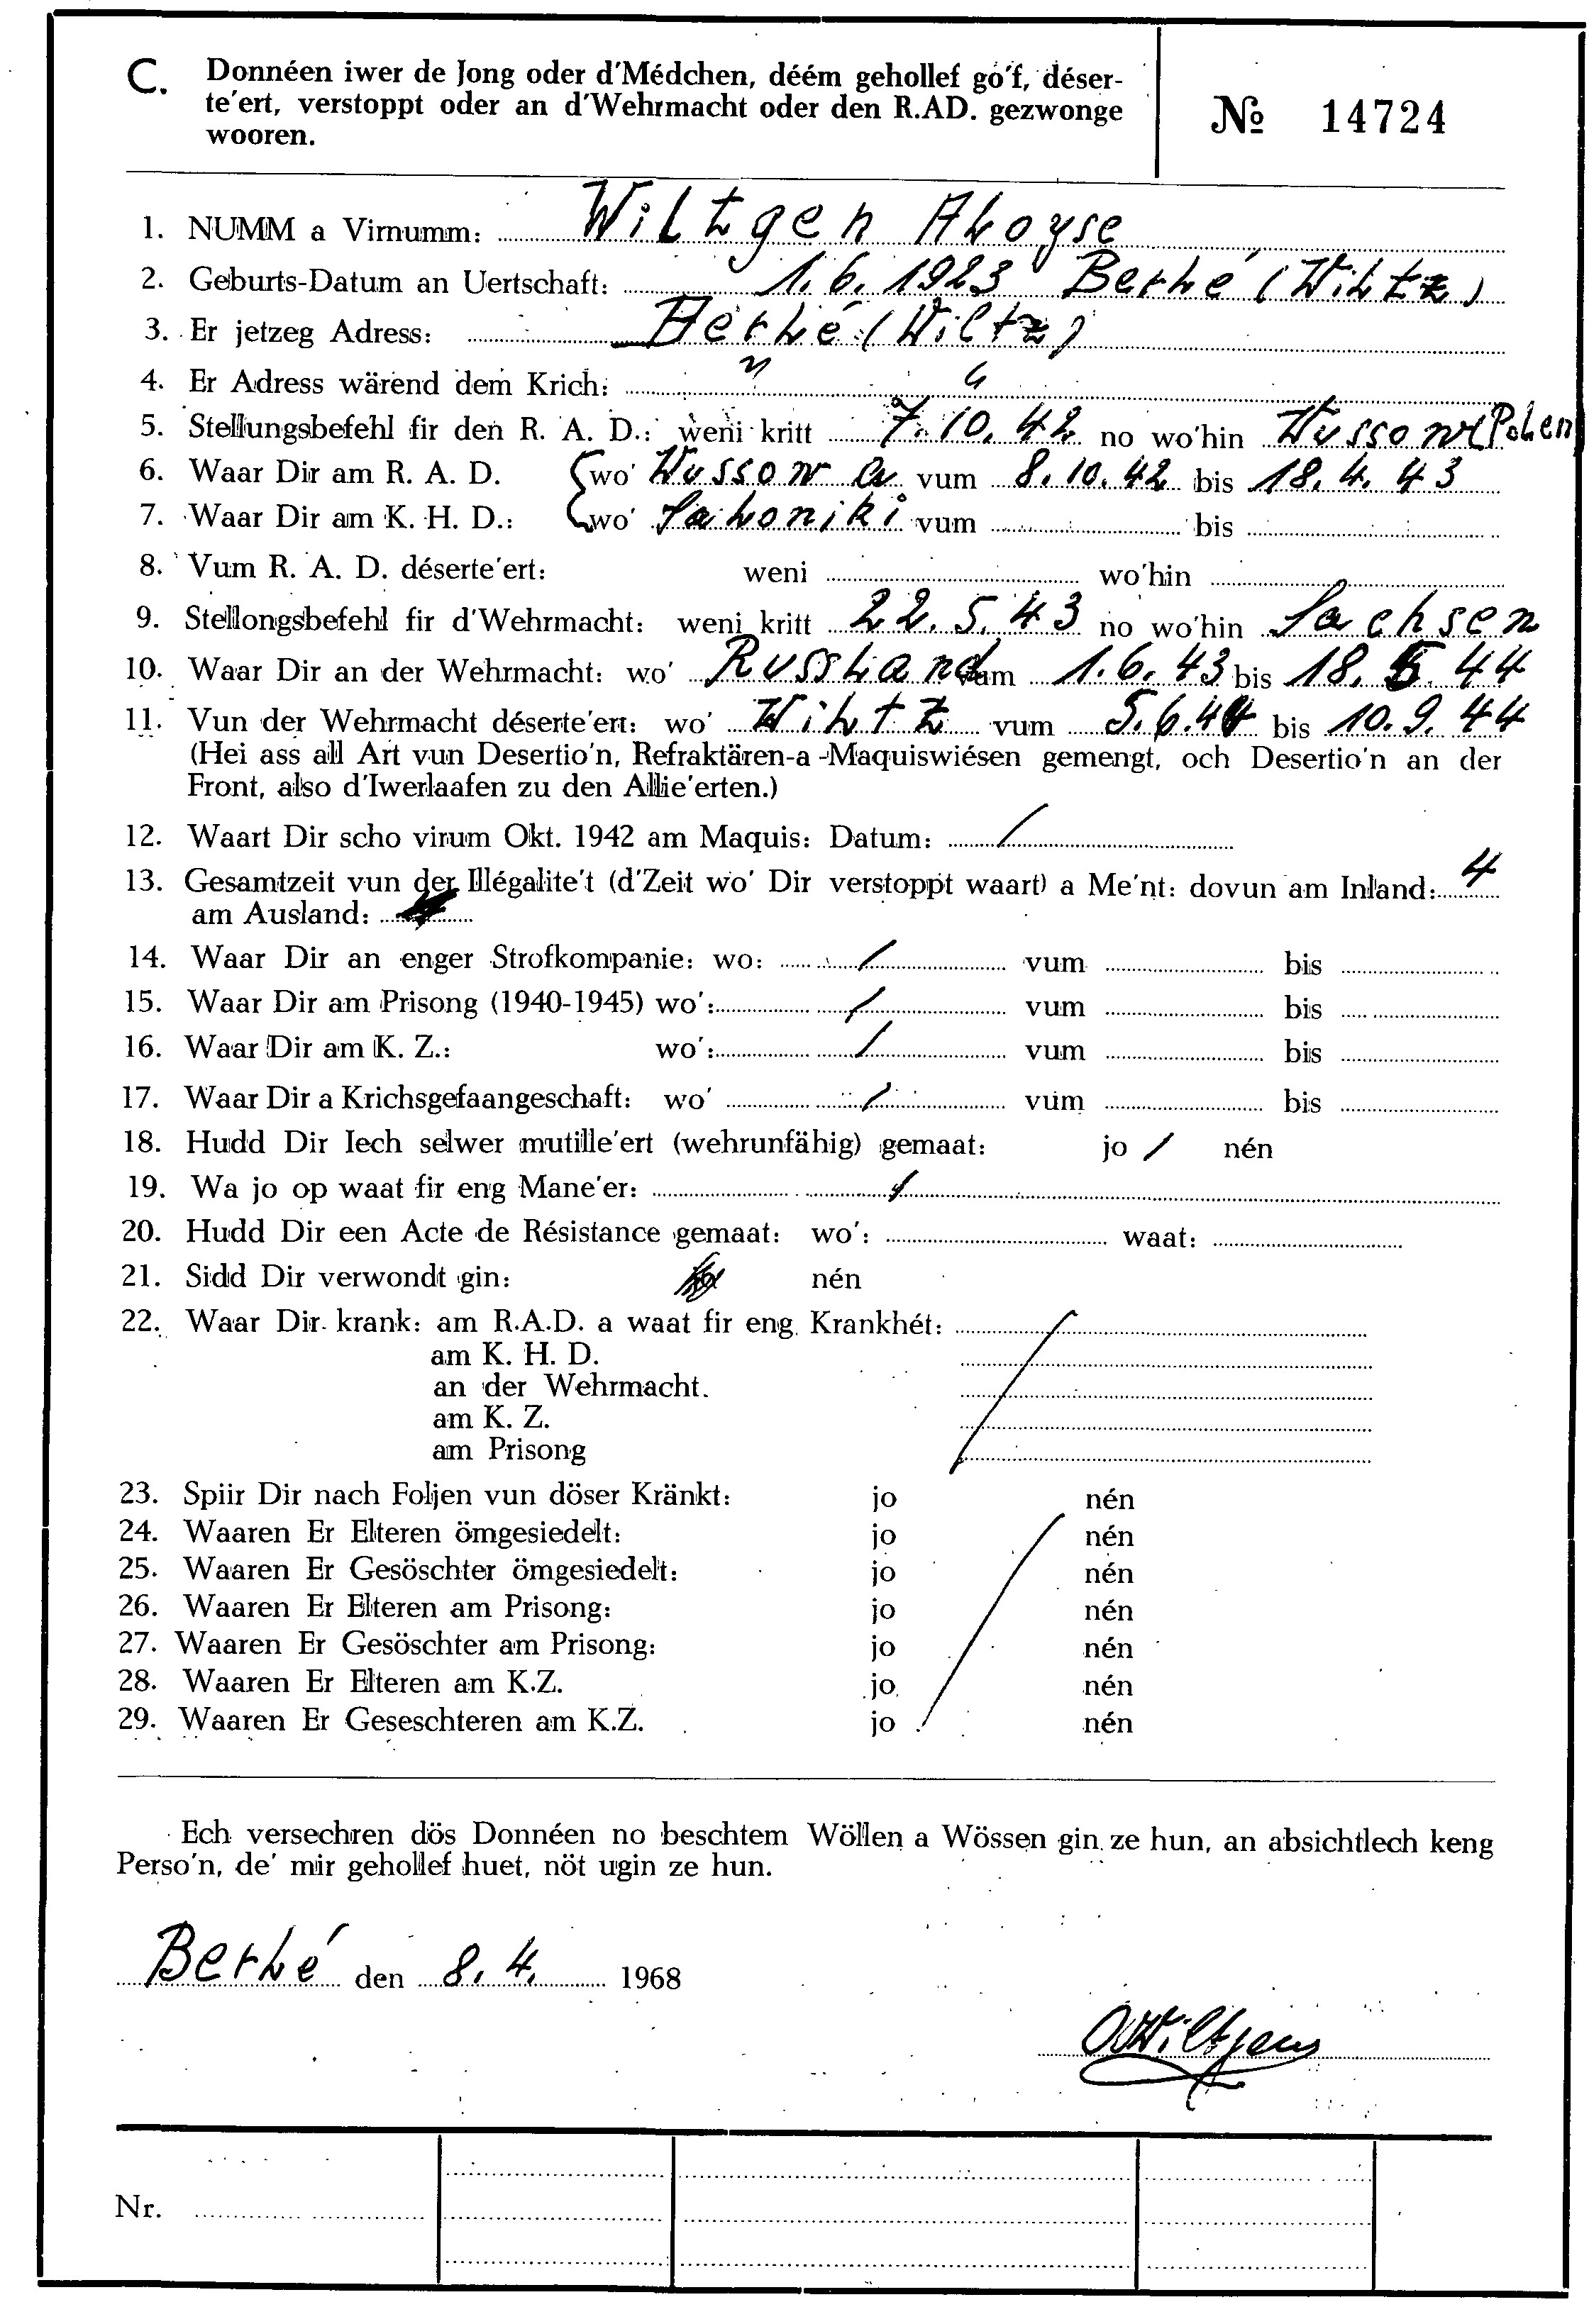 C. Donnéen iwer de Jong oder d'Médchen, déém gehollef go'f, déser-
te'ert, verstoppt oder an d'Wehrmacht oder den R.AD. gezwonge
wooren.
№ 14724
1. NUMM a Virnumm: Wiltgen Aloyse
2. Geburts-Datum an Uertschaft: 1.6.1923 Berlé (Wiltz)
3. Er jetzeg Adress: Berlé (Wiltz)
4. Er Adress wärend dem Krich: " "
5. Stellungsbefehl fir den R. A. D.: weni kritt 7.10.42 no wo'hin Wussow (Polen)
6. Waar Dir am R. A. D. wo' Wussow vum 8.10.42 bis 18.4.43
7. Waar Dir am K. H. D.: wo' vum bis
8. Vum R. A. D. déserte'ert: weni wo'hin
9. Stellongsbefehl fir d'Wehrmacht: weni kritt 22.5.43 no wo'hin Sachsen
10. Waar Dir an der Wehrmacht: wo' Russland vum 1.6.43 bis 18.5.44
11. Vun der Wehrmacht déserte'ert: wo' Wiltz vum 5.6.44 bis 10.9.44
(Hei ass all Art vun Desertio'n, Refraktären-a-Maquiswiésen gemengt, och Desertio'n an der
Front, also d'Iwerlaafen zu den Allie'erten.)
12. Waart Dir scho virum Okt. 1942 am Maquis: Datum: /
13. Gesamtzeit vun der Illégalite't (d'Zeit wo' Dir verstoppt waart) a Me'nt: dovun am Inland: 4
am Ausland:
14. Waar Dir an enger Strofkompanie: wo: / vum bis
15. Waar Dir am Prisong (1940-1945) wo': / vum bis
16. Waar Dir am K. Z.: wo': / vum bis
17. Waar Dir a Krichsgefaangeschaft: wo' / vum bis
18. Hudd Dir Iech selwer mutille'ert (wehrunfähig) gemaat: jo / nén
19. Wa jo op waat fir eng Mane'er: /
20. Hudd Dir een Acte de Résistance gemaat: wo': waat:
21. Sidd Dir verwondt gin: nén
22. Waar Dir krank: am R.A.D. a waat fir eng Krankhét:
am K. H. D.
an der Wehrmacht.
am K. Z.
am Prisong
23. Spiir Dir nach Foljen vun döser Kränkt: jo nén
24. Waaren Er Elteren ömgesiedelt: jo nén
25. Waaren Er Gesöschter ömgesiedelt: jo nén
26. Waaren Er Elteren am Prisong: jo nén
27. Waaren Er Gesöschter am Prisong: jo nén
28. Waaren Er Elteren am K.Z. jo nén
29. Waaren Er Geseschteren am K.Z. jo nén
Ech versechren dös Donnéen no beschtem Wöllen a Wössen gin ze hun, an absichtlech keng
Perso'n, de' mir gehollef huet, nöt ugin ze hun.
Berlé den 8.4. 1968
Nr.